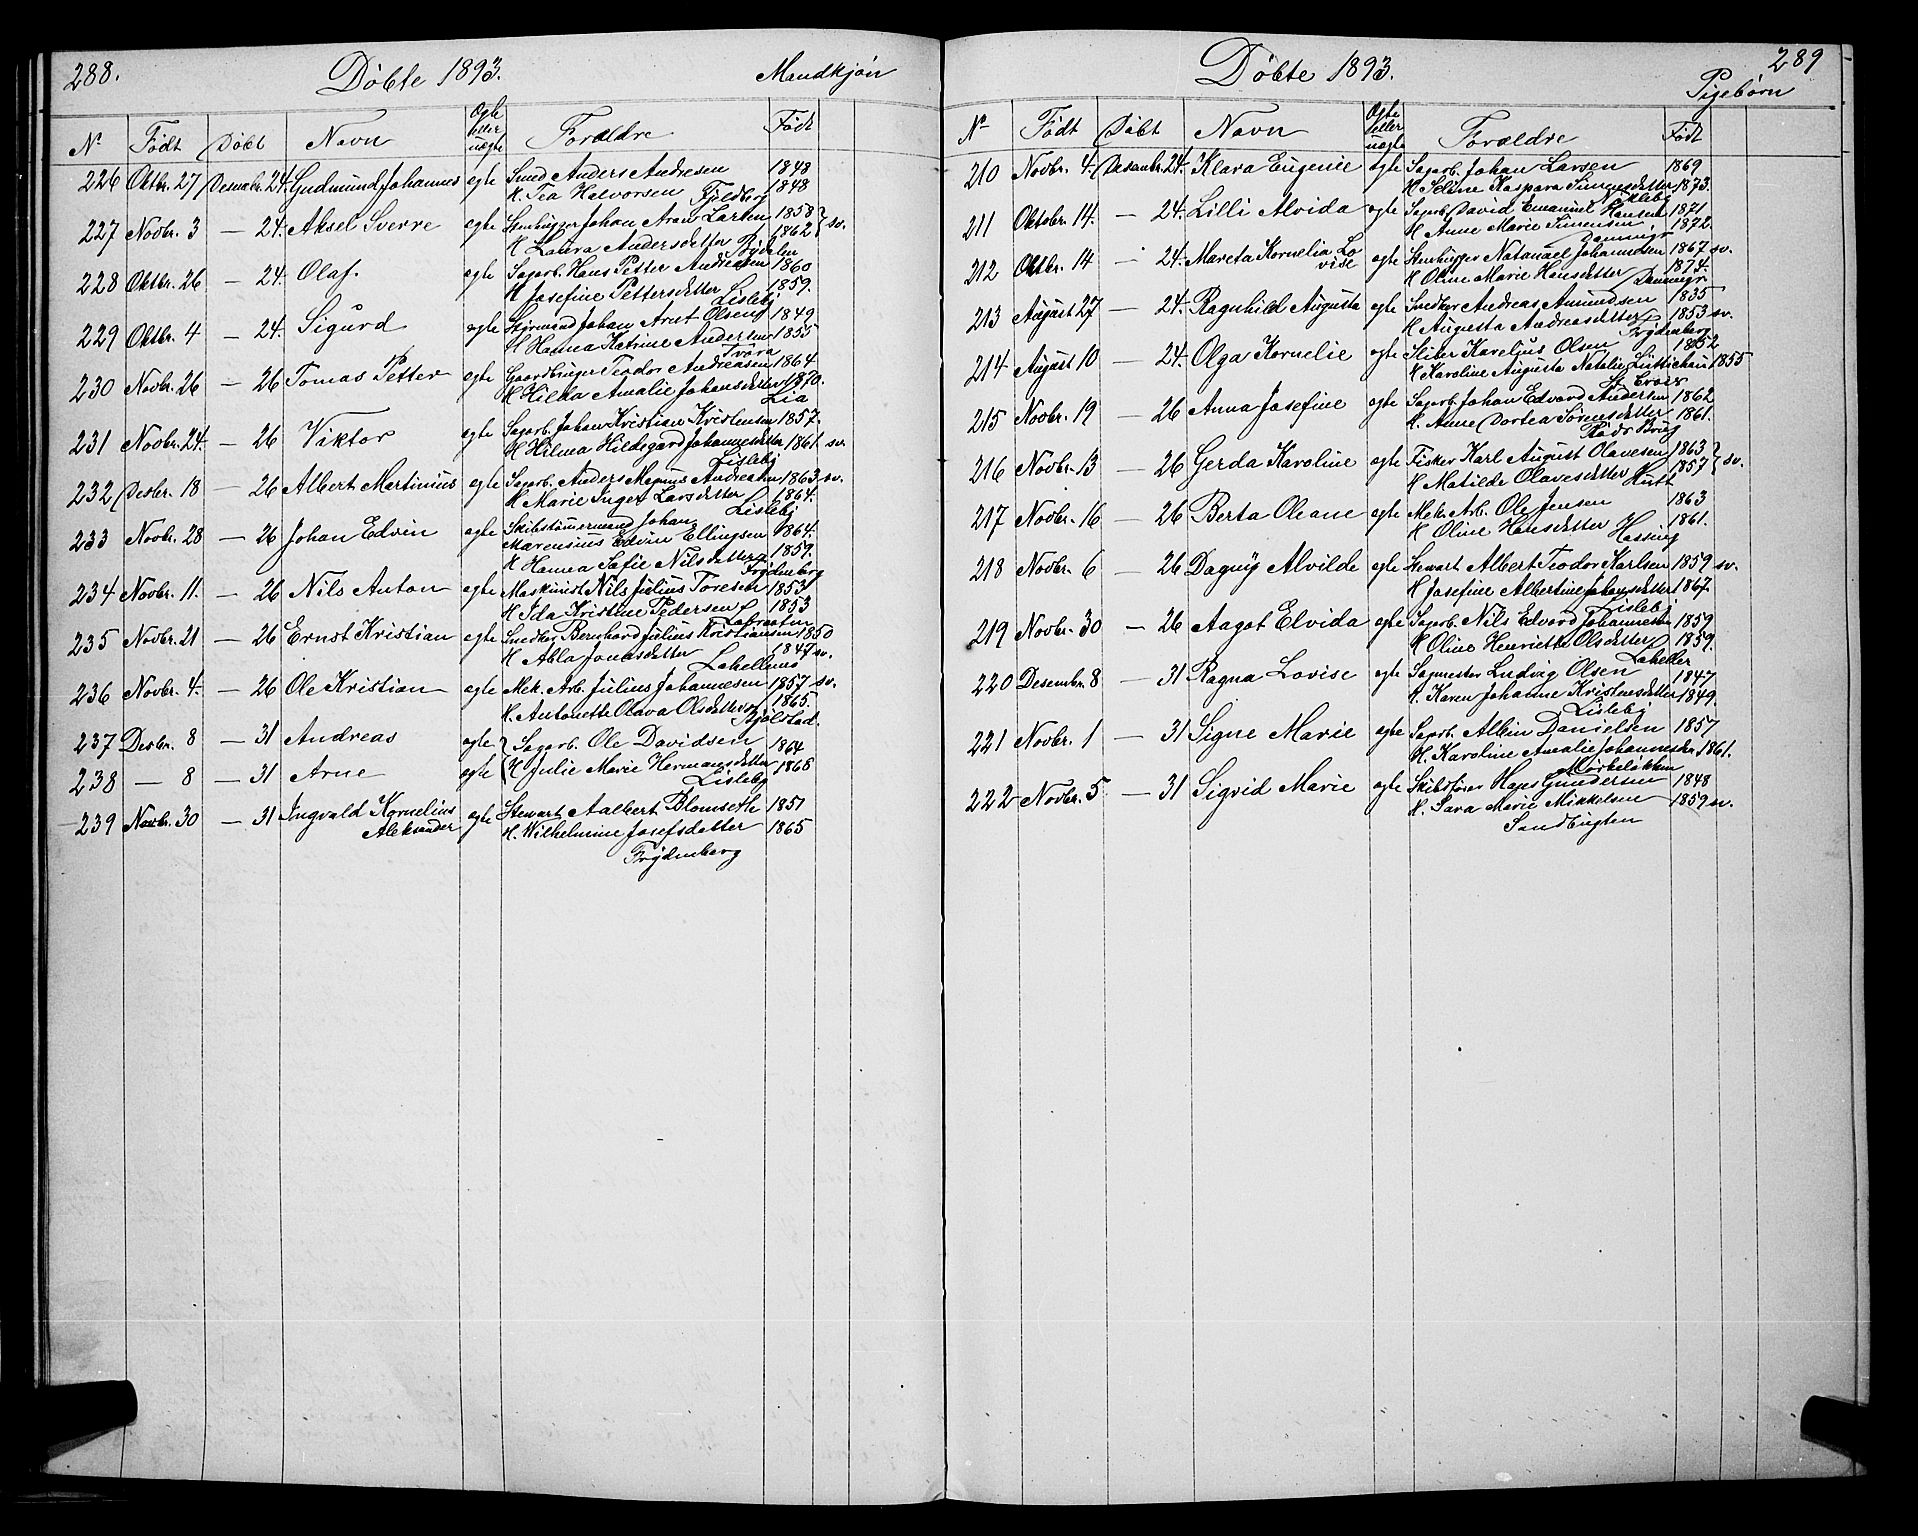 288.
Döbte 1893.
Mandkjön
Nº Födt Döbt Navn Ogte eller uægte Foraldre Födt
226 Oktbr. 27 Desembr. 24. Gudmund Johannes egte Smed Anders Andresen 1848
H. Tea Halvorsen Fjeldberg 1848
227 Novbr. 3 — 24. Aksel Sverre egte Stenhugger Johan Larsen 1858
H Laura Andersdetter 1862 } sv.
228 Oktbr. 26 — 24. Olaf. egte Sagarb. Hans Petter Andreasen 1860
H Josefine Pettersdetter 1859.
Lisleby
229 Oktbr. 4 — 24. Sigurd egte Styrmand Johan Arnt Olsen 1849
H Hanna Katrine Andersen 1855
Trara
230 Novbr. 26 — 26 Tomas Petter egte Gaardbruger Teodor Andreasen 1864
H Hilda Amalie Johansdetter 1870.
Lia
231 Novbr. 24. — 26 Viktor egte Sagarb. Johan Kristian Kristensen 1857.
H Hilma Hildegard Johannesdetter 1861. sv.
Lisleby
232 Desbr. 18 — 26 Albert Martinius egte Sagarb. Anders Magnus Andreasen 1863 sv.
H Marie Inger Larsdetter 1864.
Lisleby
233 Novbr. 28 — 26 Johan Edvin egte Skibstömermand Johan
Marensius Edvin Ellingsen 1864.
H Hanna Sofie Nilsdetter 1859.
Frydenberg
234 Novbr. 11. — 26 Nils Anton egte Maskinist Nils Julius Toresen 1853
H Ida Kristine Pedersen 1853
235 Novbr. 21 — 26 Ernst Kristian egte Snedker Bernhard Julius Kristiansen 1850
H Abla Jonasdetter 1847 sv.
Lahellens
236 Novbr. 4. — 26 Ole Kristian egte Mek. Arb. Julius Johannesen 1857 sv.
H. Antonette Olava Olsdetter 1865.
Kjölstad.
237 Desbr. 8 — 31 Andreas egte { Sagarb. Ole Davidsen 1864
238 — 8 — 31 Arne egte { H Julie Marie Hermansdetter 1868
Lisleby
239 Novbr. 30 — 31 Ingvald Kornelius egte Stewart Aalbert Blomseth 1851
Aleksander H. Wilhelmine Josefsdetter 1865
Frydenberg
Döbte 1893.
289
Pigebörn
Nº Födt Döbt Navn Ogte eller uegte Foraldre Födt
210 Novbr. 4. Desembr. 24. Klara Eugenie egte Sagarb. Johan Larsen 1869
H Seline Kaspara Simensdetter 1873.
211 Oktobr. 14. — 24. Lilli Alvida egte Sagarb. David Emanuel Hansen 1871
H Anne Marie Simensen 1872.
212 Oktbr. 14 — 24. Mareta Kornelia Lo egte Stenhugger Natanael Johannesen 1867 sv.
vise H Oline Marie Hansdetter 1874.
213 August 27 — 24. Ragnhild Augusta egte Snedker Andreas Amundsen 1835
H Augusta Andreasdetter 1853 sv.
Frydenberg
214 August 10 — 24. Olga Kornelie egte Sliber Karelius Olsen 1852
H Karoline Augusta Natalie Lüttichau 1855
St. Croix
215 Novbr. 19 — 26 Anna Josefine egte Sagarb. Johan Edvard Andersen 1862
H. Anne Dortea Sörensdetter 1861.
Röds Brug
216 Novbr. 13 — 26 Gerda Karoline egte Fisker Karl August Olavesen 1863
H Matilde Olavesdetter 1857 } sv.
Hutt
217 Novbr. 16 — 26 Berta Oleane egte Mek. Arb. Ole Jensen 1863
H Oline Hansdetter 1861.
Hassing
218 Novbr. 6 — 26 Dagny Alvilde egte Stewart Albert Teodor Karlsen 1859 sv.
H Josefine Albertine Johansdetter 1867.
Lisleby
219 Novbr. 30 — 26 Aagot Elvida egte Sagarb. Nils Edvard Johannesen 1859
H Oline Henriette Olsdetter 1859.
Laheller
220 Desembr. 8 — 31 Ragna Lovise egte Sagmester Ludvig Olsen 1847
H. Karen Johanne Kristensdetter 1849.
Lisleby
221 Novbr. 1 — 31 Signe Marie egte Sagarb. Albin Danielsen 1857
H. Karoline Amalie Johannesdr. 1861.
Mörkelökken
222 Novbr. 5 — 31 Sigrid Marie egte Skibsförer Hans Gundersen 1848
H. Sara Marie Mikkelsen 1859 sv.
Sandbugten